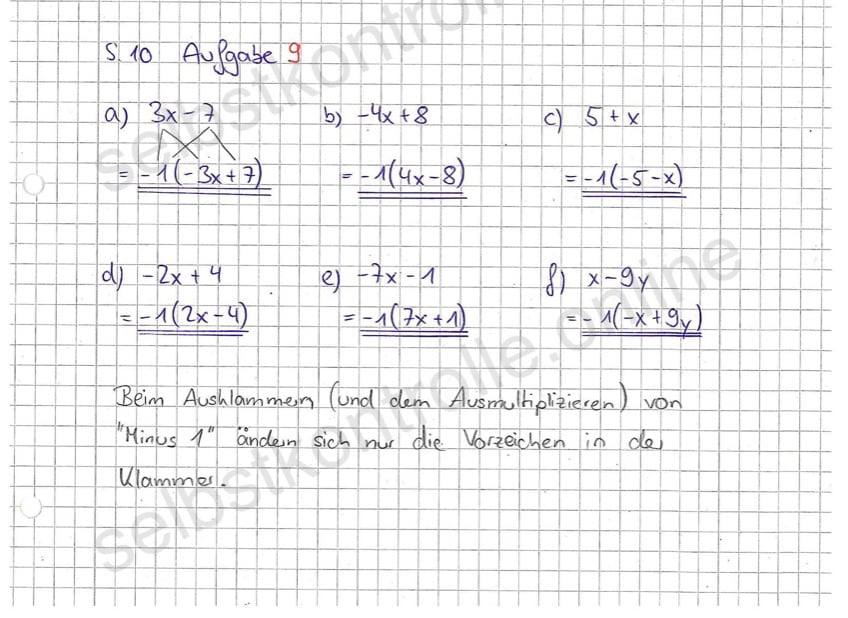 S. 10 Aufgabe 9
a) 3x - 7
b) -4x + 8
c) 5 + x
= -1(-3x + 7)
= -1(4x - 8)
= -1(-5 - x)
d) -2x + 4
e) -7x - 1
f) x - 9y
= -1(2x - 4)
= -1(7x + 1)
= -1(-x + 9y)
Beim Ausklammern (und dem Ausmultiplizieren) von
"Minus 1" ändern sich nur die Vorzeichen in der
Klammer.
selbstkontrolle.online
selbstkontrolle.online